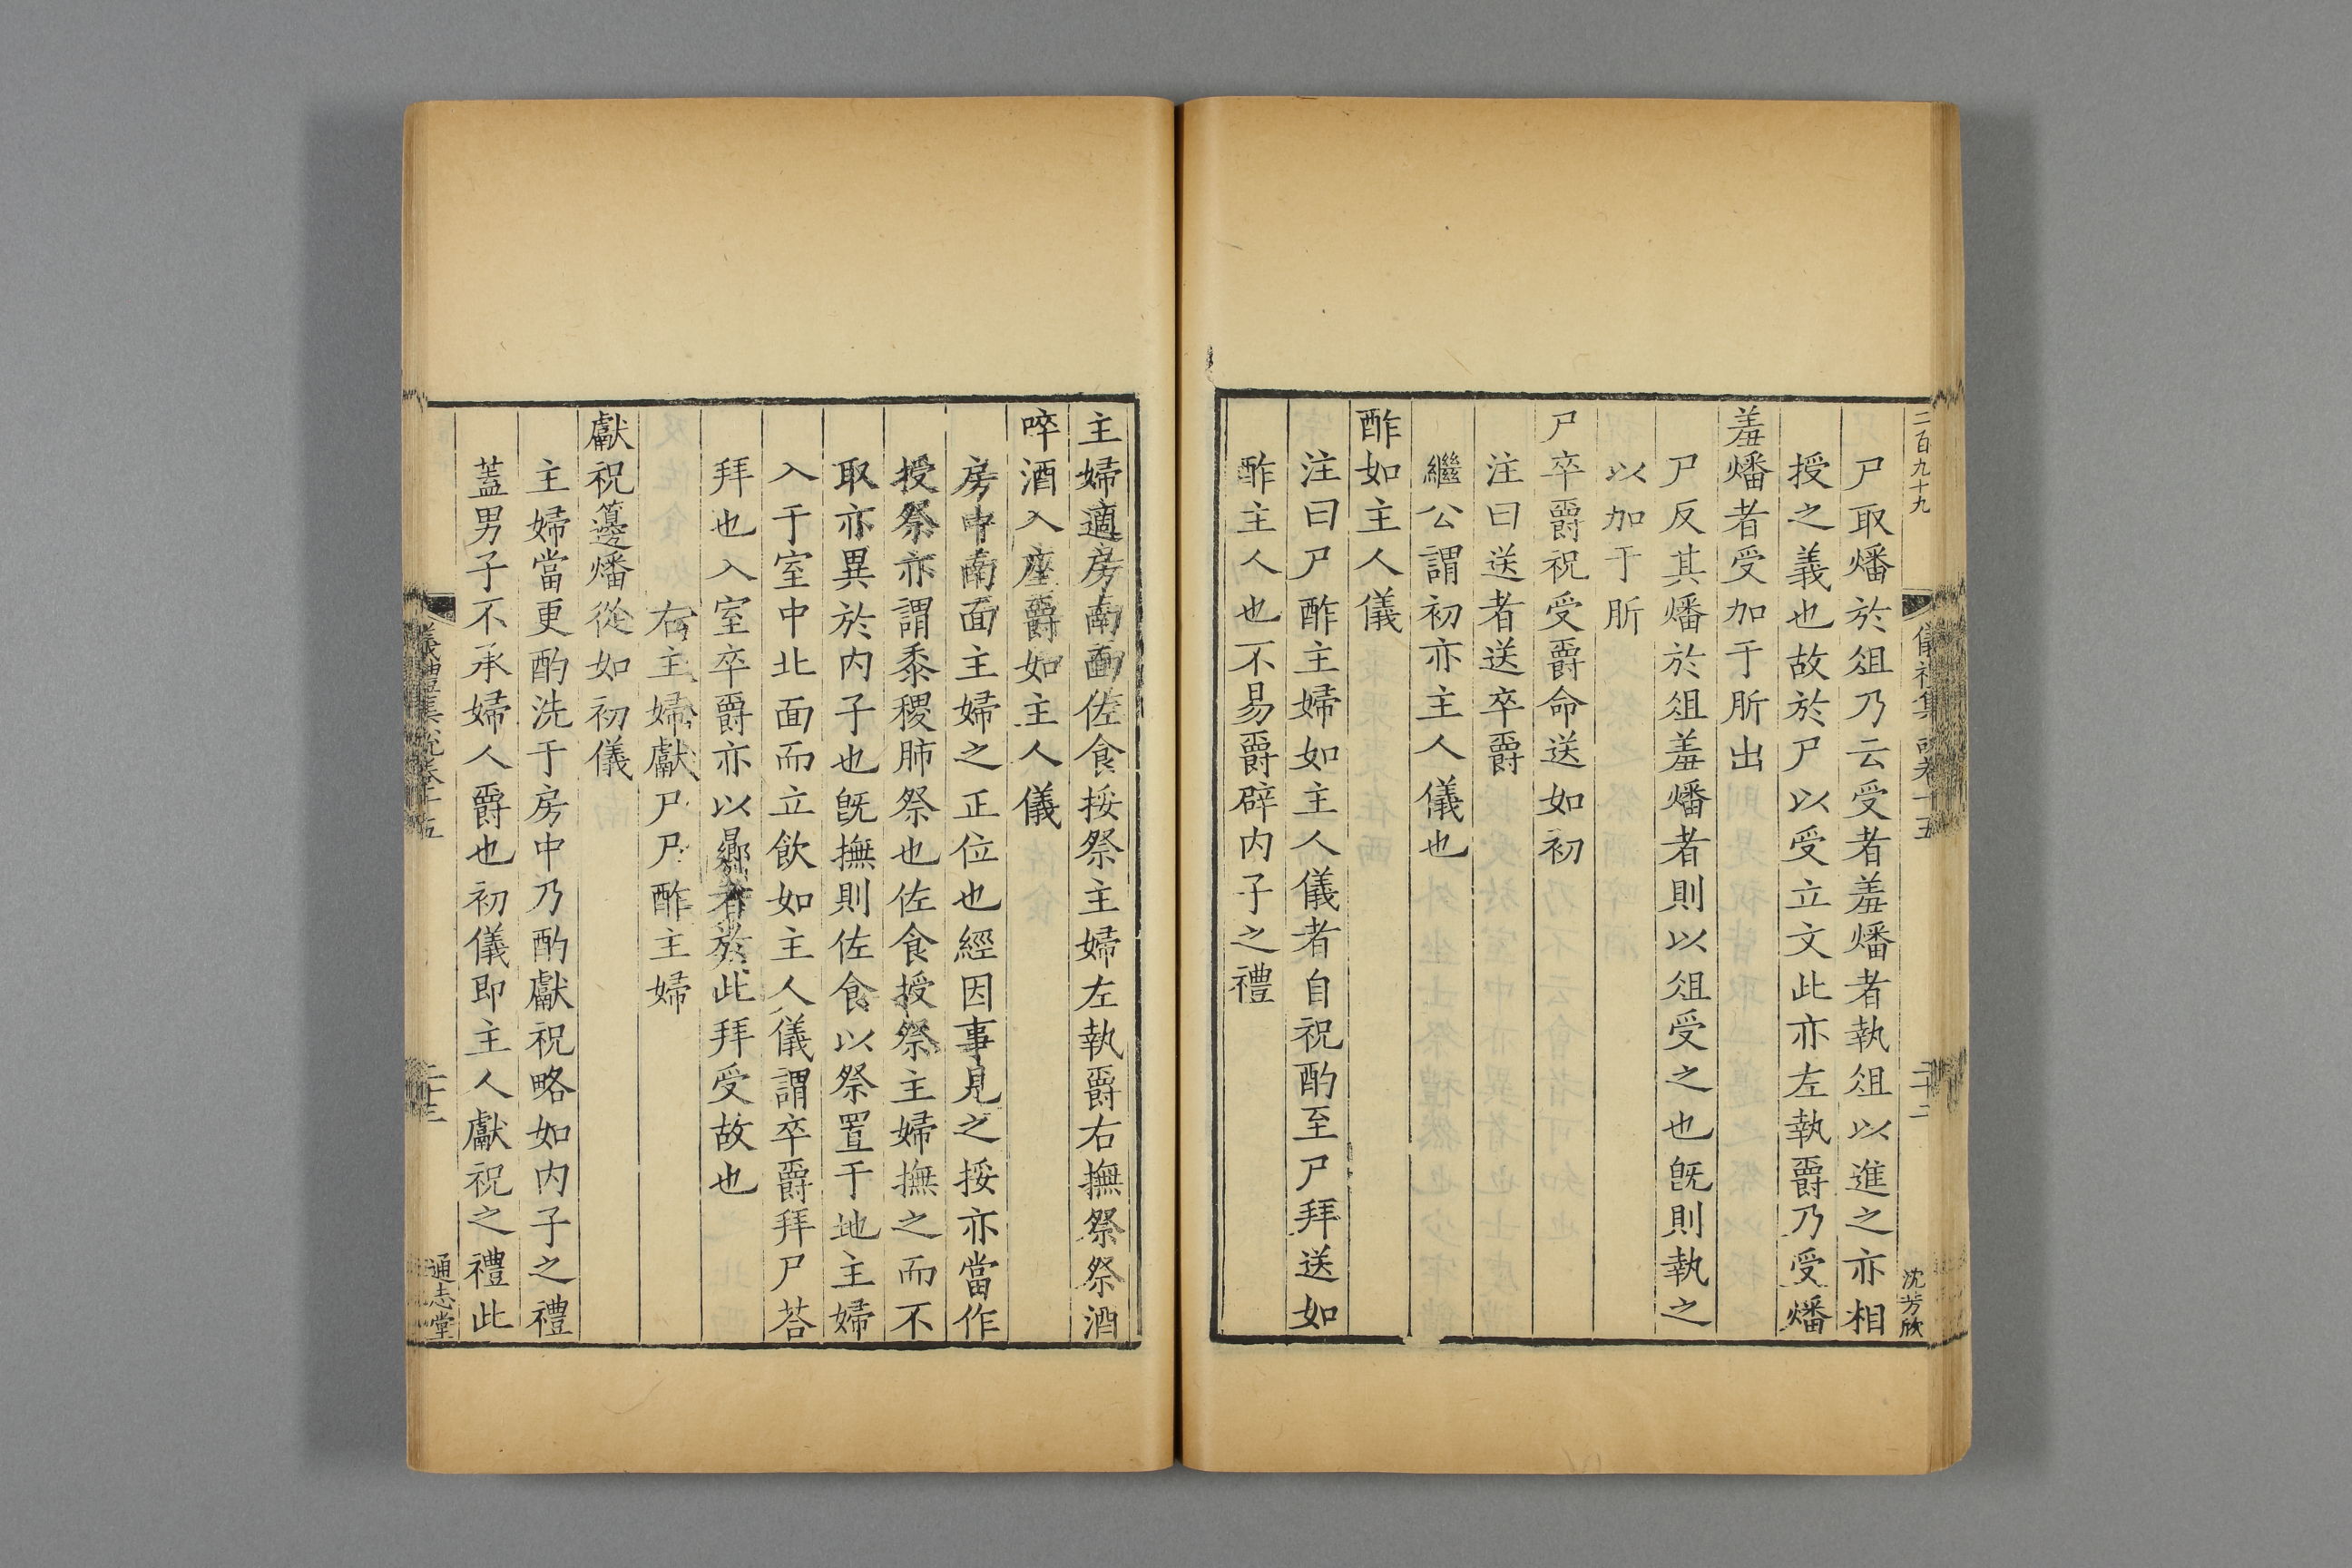 二百九十九
儀禮集說卷十五
二十二
沈芳欣
尸取燔於俎乃云受者羞燔者執俎以進之亦相
授之義也故於尸以受立文此亦左執爵乃受燔
羞燔者受加于肵出
尸反其燔於俎羞燔者則以俎受之也旣則執之
以加于肵
尸卒爵祝受爵命送如初
注曰送者送卒爵
繼公謂初亦主人儀也
酢如主人儀
注曰尸酢主婦如主人儀者自祝酌至尸拜送如
酢主人也不易爵辟内子之禮
主婦適房南面佐食挼祭主婦左執爵右撫祭祭酒
啐酒入卒爵如主人儀
房中南面主婦之正位也經因事見之挼亦當作
授祭亦謂黍稷肺祭也佐食授祭主婦撫之而不
取亦異於内子也旣撫則佐食以祭置于地主婦
入于室中北面而立飲如主人儀謂卒爵拜尸荅
拜也入室卒爵亦以鄉者於此拜受故也
右主婦獻尸尸酢主婦
獻祝籩燔從如初儀
主婦當更酌洗于房中乃酌獻祝略如内子之禮
蓋男子不承婦人爵也初儀即主人獻祝之禮此
儀禮集說卷十五
二十三
通志堂